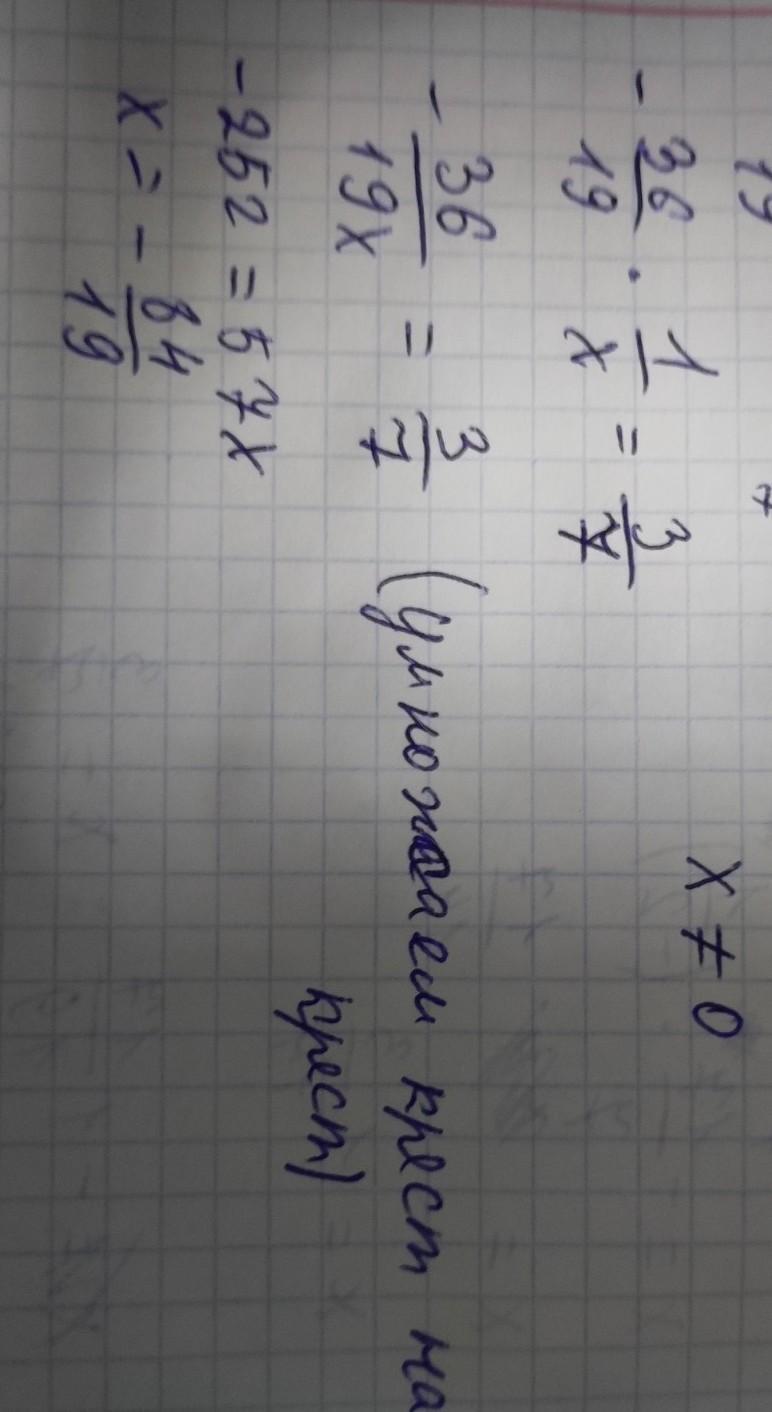 19
7
x ≠ 0
- 36/19 · 1/x = 3/7
- 36/19x = 3/7 (умножаем крест на
крест)
-252 = 57x
x = - 84/19